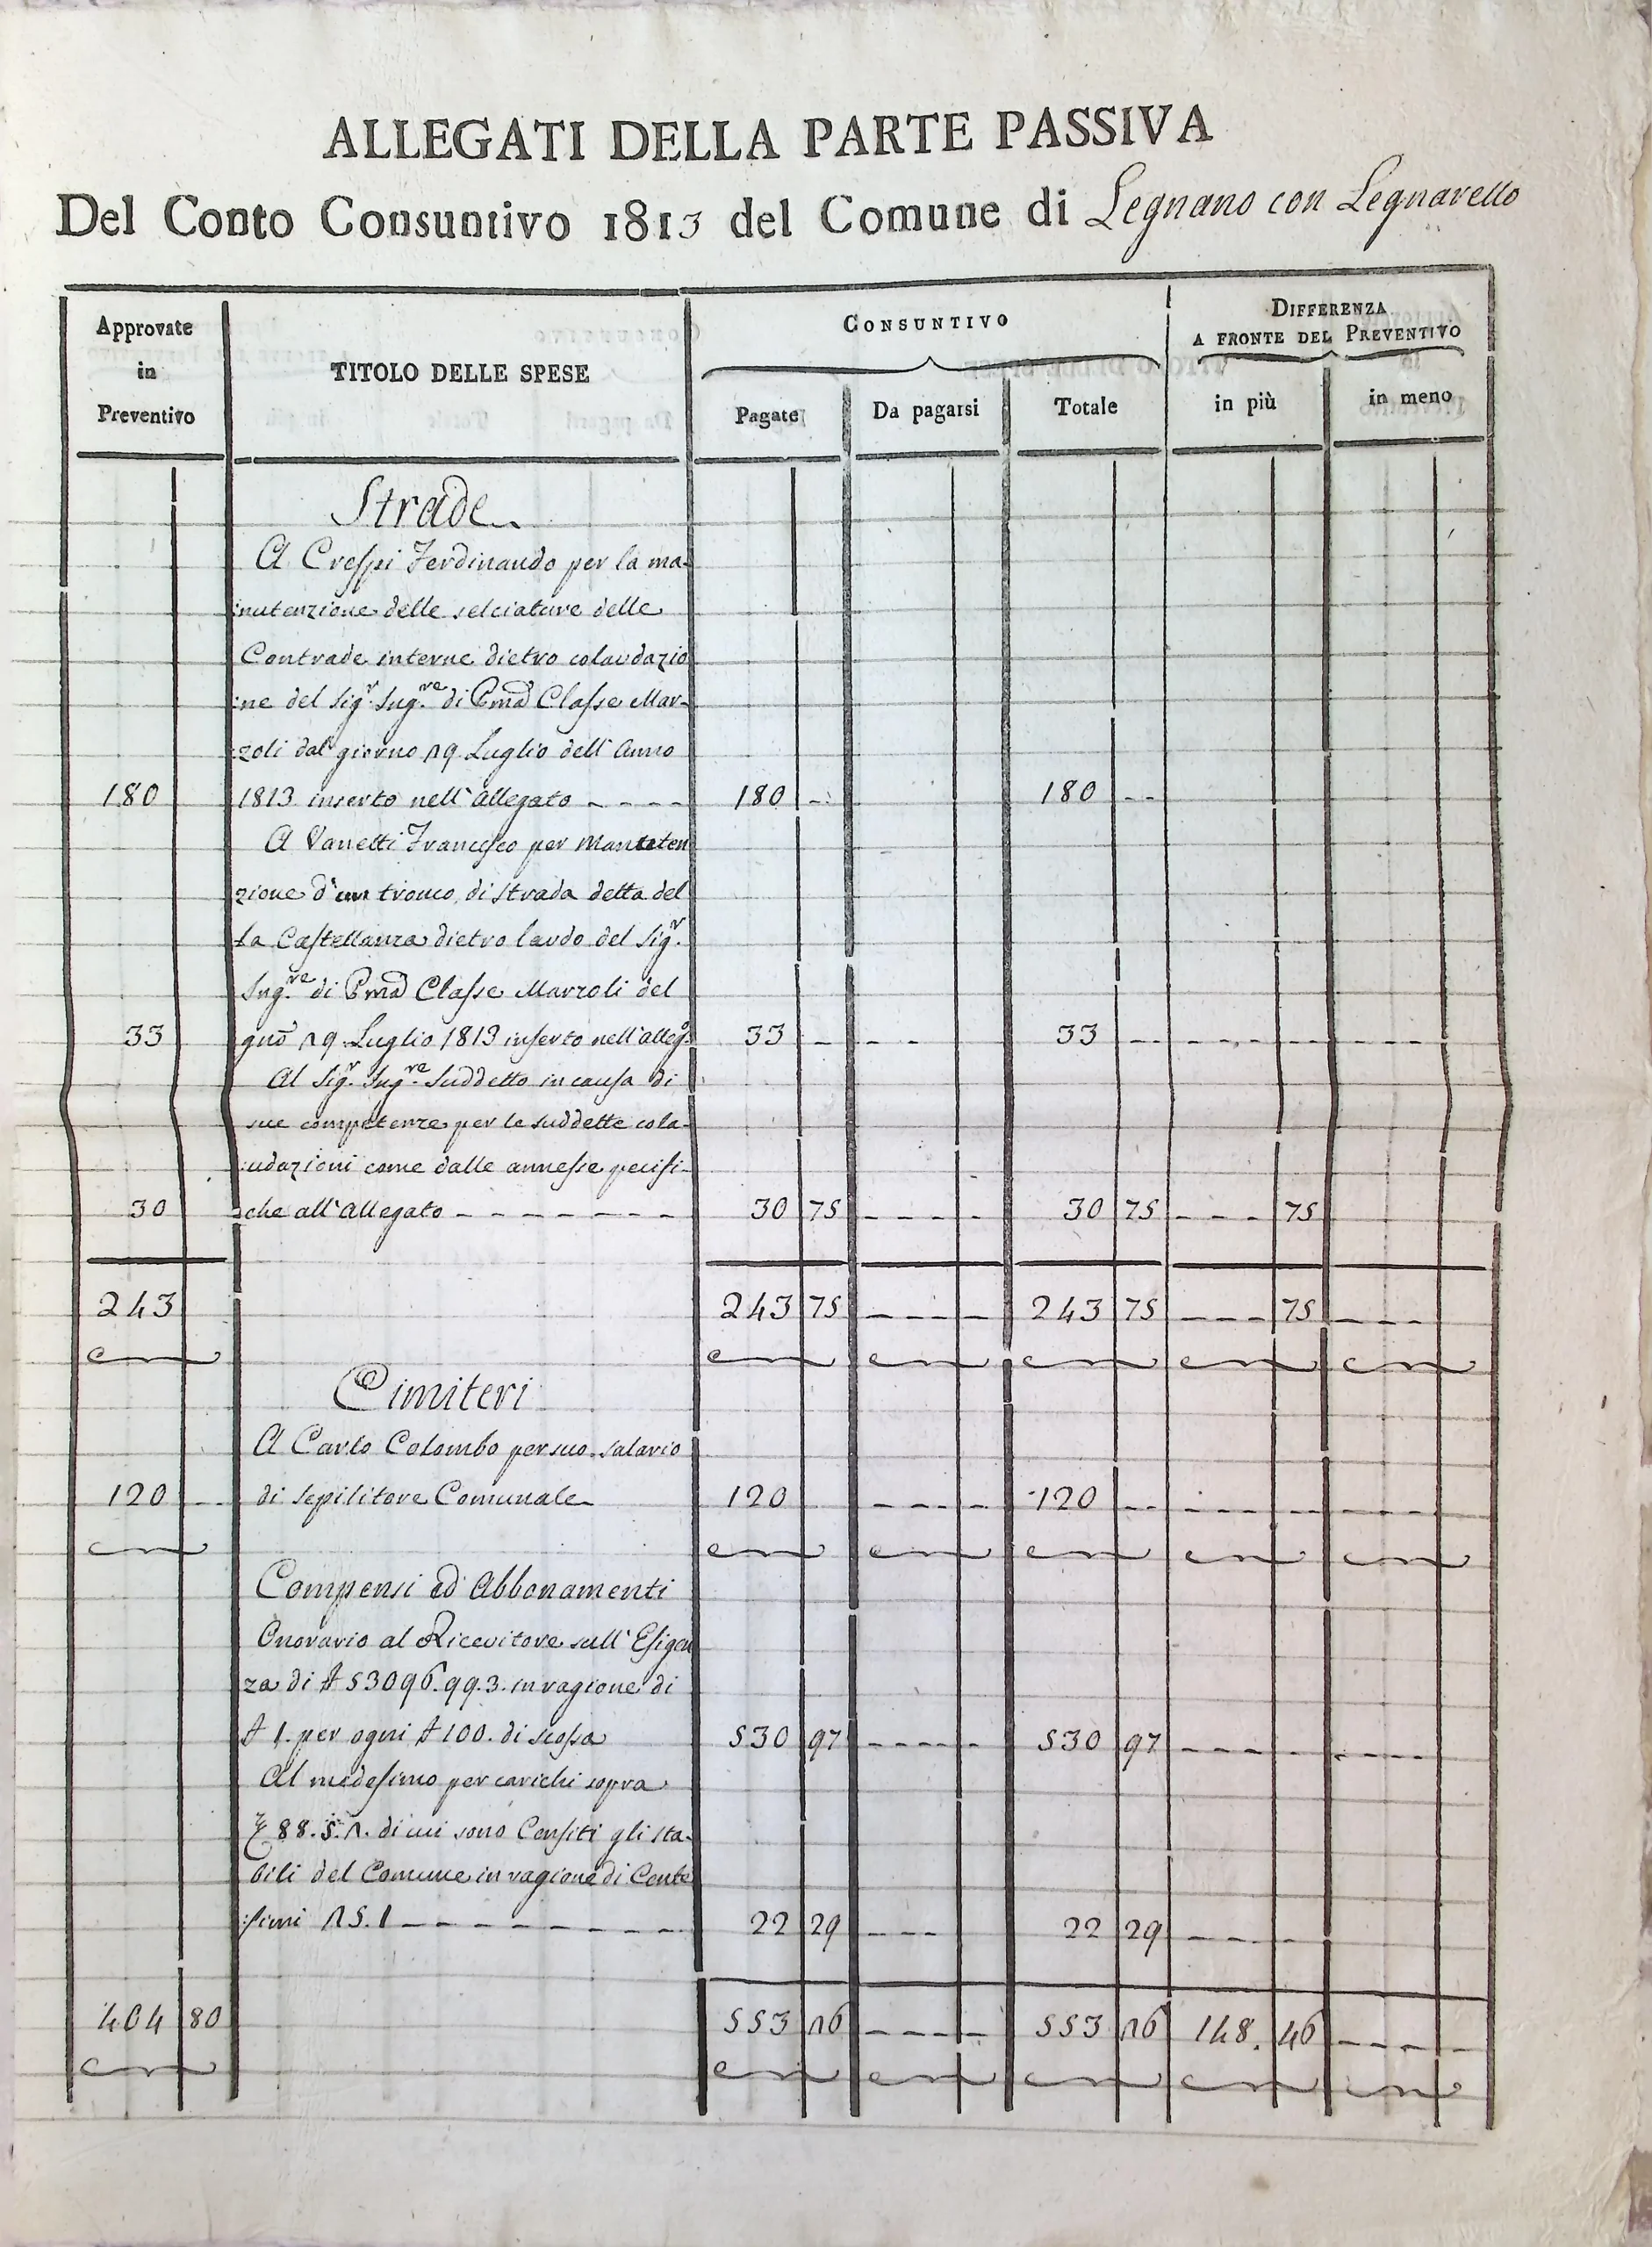 ALLEGATI DELLA PARTE PASSIVA
Del Conto Consuntivo 1813 del Comune di Legnano con Legnarello
Approvate in Preventivo
TITOLO DELLE SPESE
CONSUNTIVO
Pagate
Da pagarsi
Totale
DIFFERENZA
A FRONTE DEL PREVENTIVO
in più
in meno
Strade
A Crespi Ferdinando per la ma-
nutenzione delle selciature delle
Contrade interne dietro colaudazio
:ne del Sig.r Ing.re di Pma Classe Mar-
zoli dal giorno 19 Luglio dell' Anno
180 1813 inserto nell' allegato - - - - 180 -- 180 --
A Vanetti Francesco per Manuten
zione d'un tronco di strada detta del
la Castellanza dietro laudo del Sig.r
Ing.re di Pma Classe Marzoli del
33 gno 19 Luglio 1813 inserto nell' alleg.o 33 - - - 33 -- - - - - - -
Al Sig.r Ing.re Suddetto in causa di
sue competenze per le suddette cola-
:udazioni come dalle annesse pecifi-
30 che all' Allegato - - - - - - - 30 75 - - - - 30 75 - - - 75
243 243 75 - - - - 243 75 - - - 75 - - - -
Cimiteri
A Carlo Colombo per suo salario
120 -- di sepilitore Comunale 120 - - - - 120 -- - - - - - - - -
Compensi ed Abbonamenti
Onorario al Ricevitore sull' Esigen
za di £ 53096.99.3. in ragione di
£ 1. per ogni £ 100. di scossa 530 97 - - - - - 530 97 - - - - - - - - -
Al medesimo per carichi sopra
88.5.1. di cui sono Censiti gli sta-
bili del Comune in ragione di Cente
:simi 15.1 - - - - - - - - 22 29 - - - 22 29 - - - - -
404 80 553 16 - - - - 553 16 148. 46 - - - - -